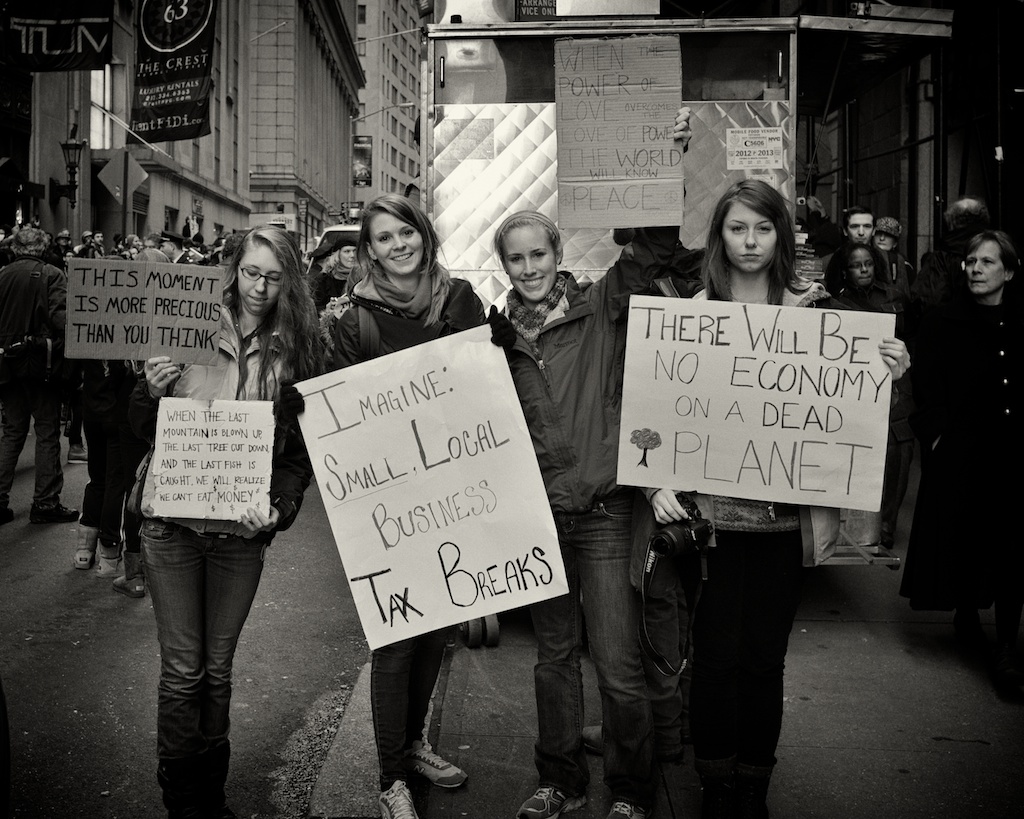 63
THE CREST
LUXURY RENTALS
entFiDi.co
ARRANGE
VICE ONL
WHEN THE
POWER OF
LOVE OVERCOMES
THE
LOVE OF POWER
WORLD
WILL KNOW
PEACE
MOBILE FOOD VENDOR
NYC
C5606
2012 - 2013
THIS MOMENT
IS MORE PRECIOUS
THAN YOU THINK
WHEN THE LAST
MOUNTAIN IS BLOWN UP
THE LAST TREE CUT DOWN,
AND THE LAST FISH IS
CAUGHT, WE WILL REALIZE
WE CAN'T EAT MONEY
IMAGINE:
SMALL, LOCAL
BUSINESS
TAX BREAKS
THERE WILL BE
NO ECONOMY
ON A DEAD
PLANET
Nikon